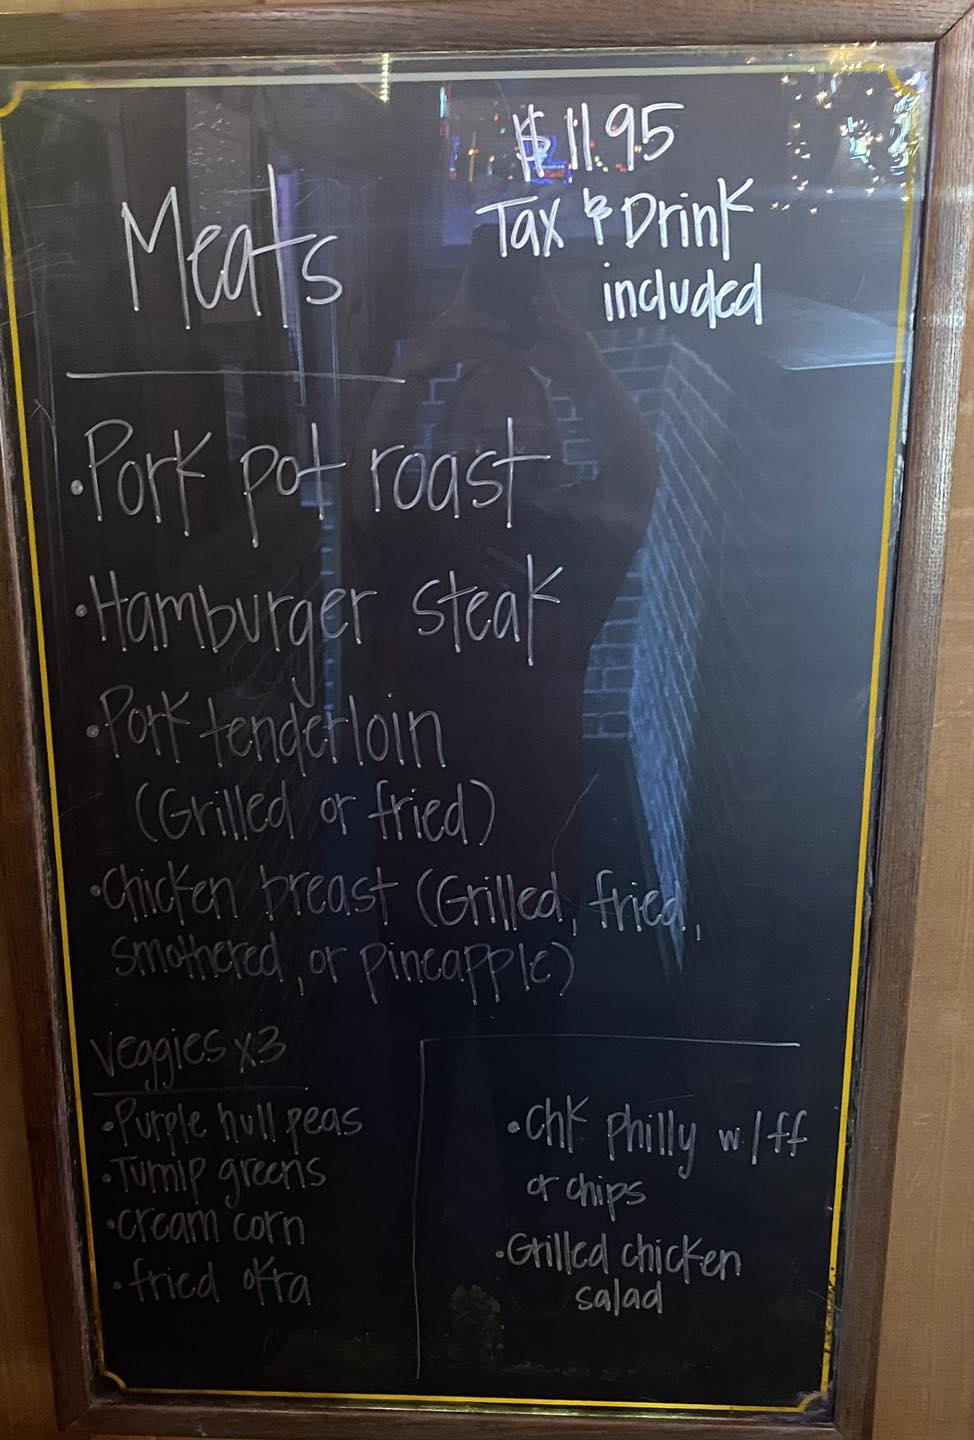 $11.95
Tax & Drink
included
Meats
•Pork pot roast
•Hamburger steak
•Pork tenderloin
(Grilled or fried)
•Chicken breast (Grilled, fried,
smothered, or pineapple)
veggies x3
•Purple hull peas
•Turnip greens
•cream corn
•fried okra
•chk philly w/ff
or chips
•Grilled chicken
salad